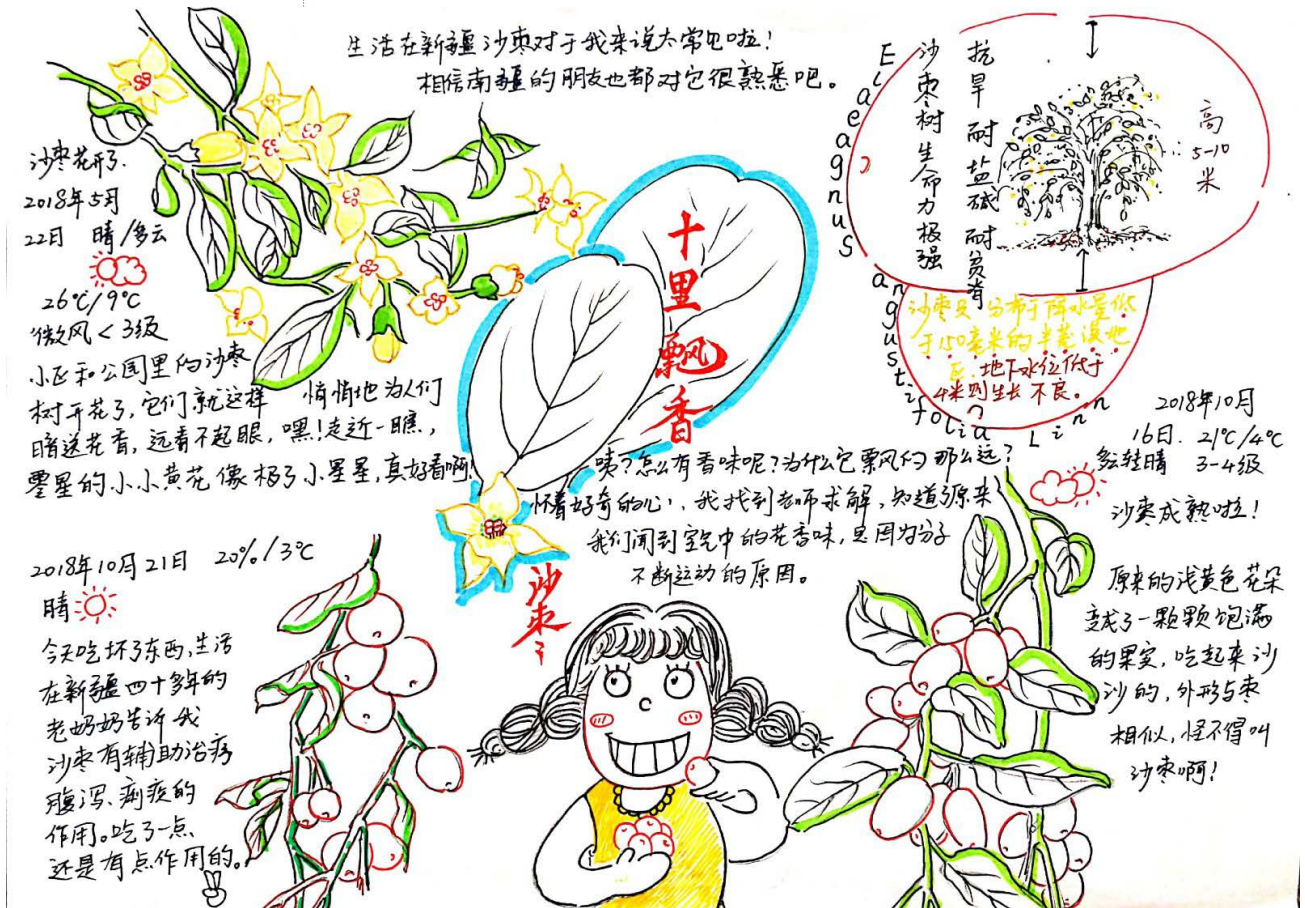 生活在新疆沙枣对于我来说太常见啦！
相信南疆的朋友也都对它很熟悉吧。
沙枣花开了
2018年5月
22日 晴/多云
26℃/9℃
微风<3级
小区和公园里的沙枣
树开花了，它们就这样 悄悄地为人们
暗送花香，远看不起眼，嘿！走近一瞧，
零星的小小黄花像极了小星星，真好看啊！
十里飘香
沙枣
Elaeagnus angustifolia Linn
沙枣树生命力极强
抗旱耐盐碱耐贫瘠
高
5-10
米
沙枣只分布于降水量低
于150毫米的半荒漠地
区，地下水位低于
4米则生长不良。
咦？怎么有香味呢？为什么它飘的那么远？
怀着好奇的心，我找到老师求解，知道了原来
我们闻到空气中的花香味，是因为分子
不断运动的原因。
2018年10月
16日. 21℃/4℃
多云转晴 3-4级
沙枣成熟啦！
原来的浅黄色花朵
变成了一颗颗饱满
的果实，吃起来沙
沙的，外形与枣
相似，怪不得叫
沙枣啊！
2018年10月21日 20%/3℃
晴
今天吃坏了东西，生活
在新疆四十多年的
老奶奶告诉我
沙枣有辅助治疗
腹泻、痢疾的
作用。吃了一点
还是有点作用的。